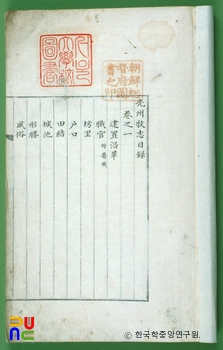 光州牧志目錄
卷之一
建置沿革
職官
坊里
戶口
田結
城池
形勝
風俗
朝鮮總
督府圖
書之印
大學校
圖書
© 한국학중앙연구원